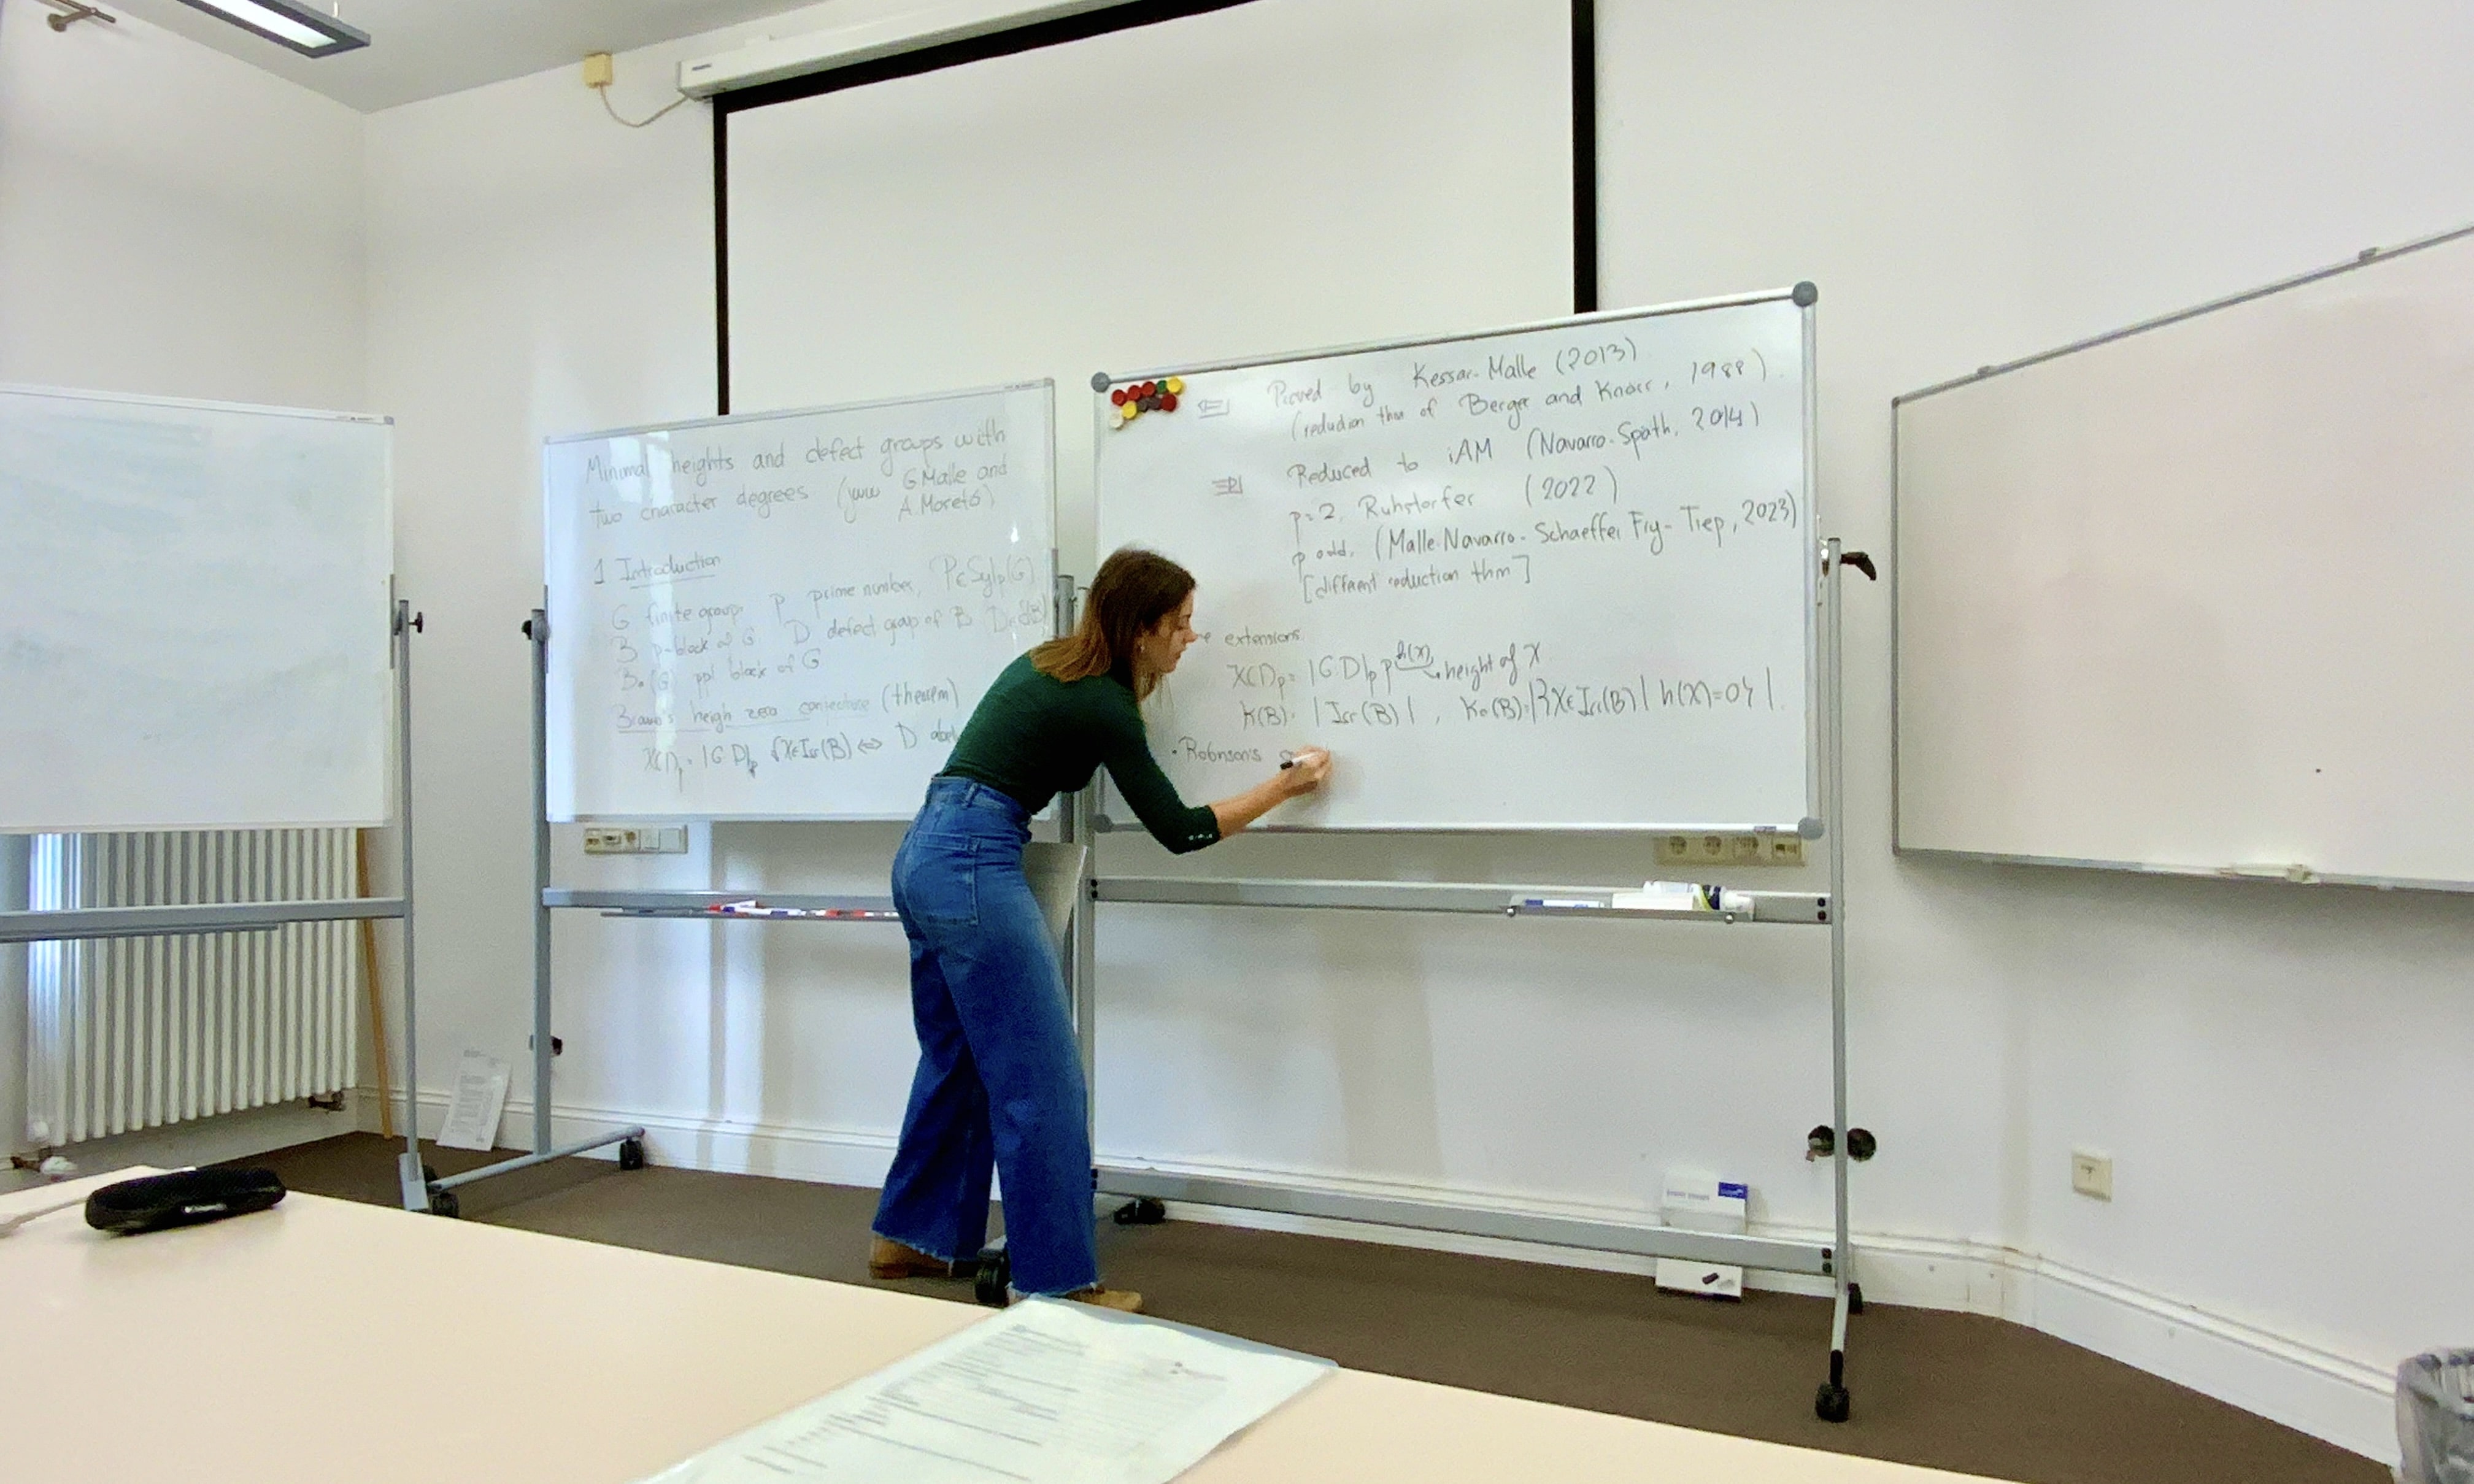 Minimal heights and defect groups with
two character degrees (yuu G Malle and
A. Moretó)
1 Introduction
G finite group p prime number, P∈Sylp(G)
B p-block of G D defect group of B
B₀(G) ppl block of G
Brauer's heigh zero conjecture (theorem)
χ(1)ₚ = |G:D|ₚ ∀χ∈Irr(B) ⇔ D abel
⇐] Proved by Kessar-Malle (2013)
(reduction thm of Berger and Knörr, 1988).
⇒] Reduced to iAM (Navarro-Späth, 2014)
p=2, Ruhstorfer (2022)
p odd, (Malle-Navarro-Schaeffer Fry-Tiep, 2023)
[different reduction thm]
extensions.
χ(1)ₚ = |G:D|ₚ p^h(χ) → height of χ
k(B) = |Irr(B)|, k₀(B) = |{χ∈Irr(B) | h(χ)=0}|.
· Robinson's